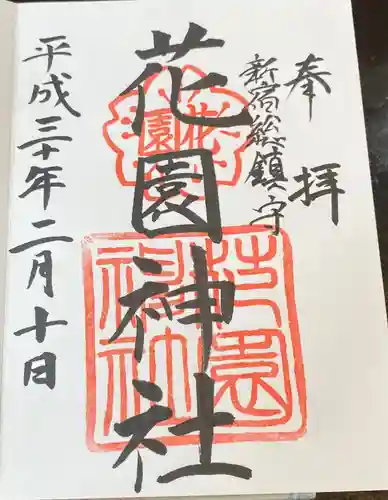 奉拝
新宿総鎮守
花園
花園神社
花園神社
平成三十年二月十日